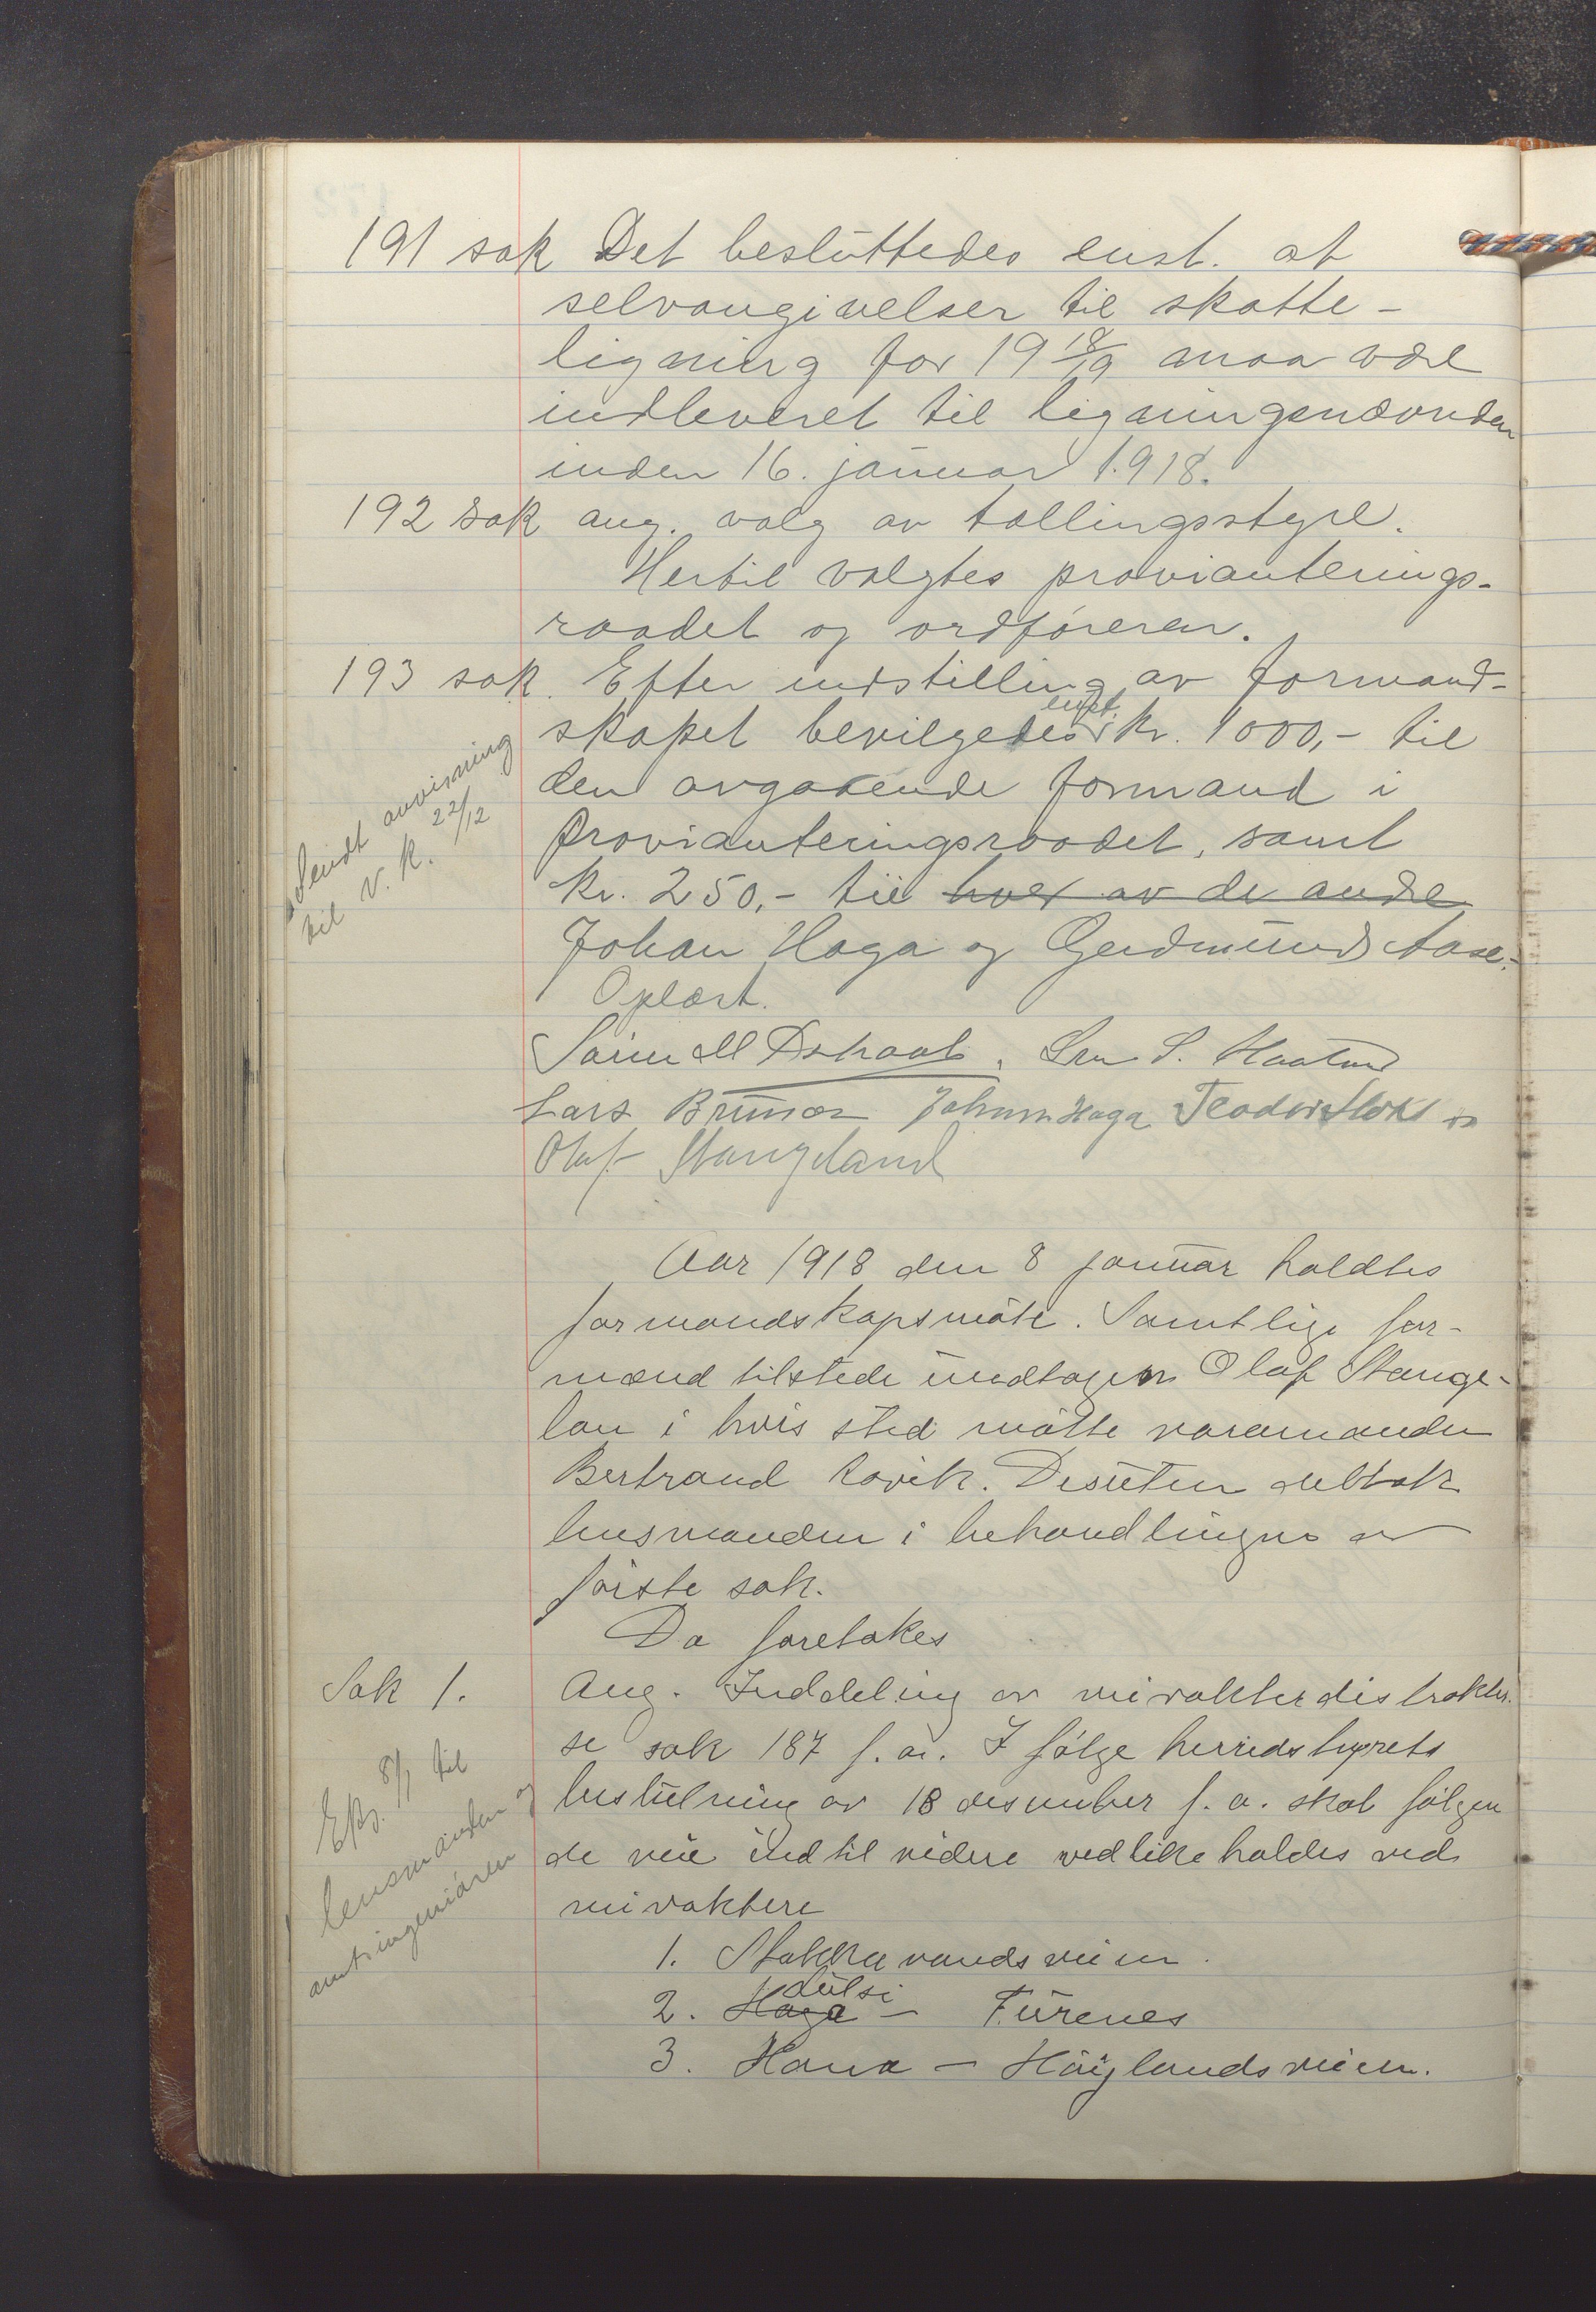 191 sak Det besluttedes enst. at
selvangivelser til skatte-
ligning for 19 18/19 maa være
indleveret til ligningsnævnden
inden 16. januar 1918.
192 sak ang. valg av tællingsstyre.
Hertil valgtes provianterings-
raadet og ordføreren.
193 sak. Efter indstilling av formand-
skapet bevilgedes enst. kr. 1000,- til
den avgaaende formand i
Provianteringsraadet, samt
kr. 250,- til hver av de andre
Johan Haga og Gudmund Aase.
Oplæst.
Sendt anvisning
til V. K. 22/12
Lars Johan Haga
Olaf Stangeland
Aar 1918 den 8 januar holdtes
formandskapsmøte. Samtlige for-
mænd tilstede undtagen Olaf Stange-
lan i hvis sted møtte varamanden
Bertrand Rovik. Desuten deltok
lensmanden i behandlingen av
første sak.
Da foretakes
Sak 1. Ang. Inddeling av veivakterdistrakter.
se sak 187 f. a. I følge herredstyrets
beslutning av 18 desember f. a. skal følgen
de veie indtil videre vedlikeholdes ved
veivaktere
Eksp. 8/1 til
lensmanden og
amtsingeniøren
1. Stokkavandsveien.
2. Haga Lutsi - Furenes
3. Hana - Høylandsveien.